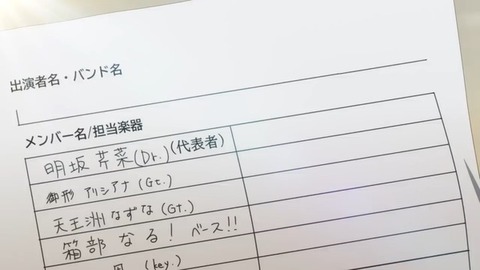 出演者名・バンド名
メンバー名/担当楽器
明坂 芹菜(Dr.)(代表者)
御形 アリシアナ (Gt.)
天王洲 なずな (Gt.)
箱部 なる! ベース!!
(key.)